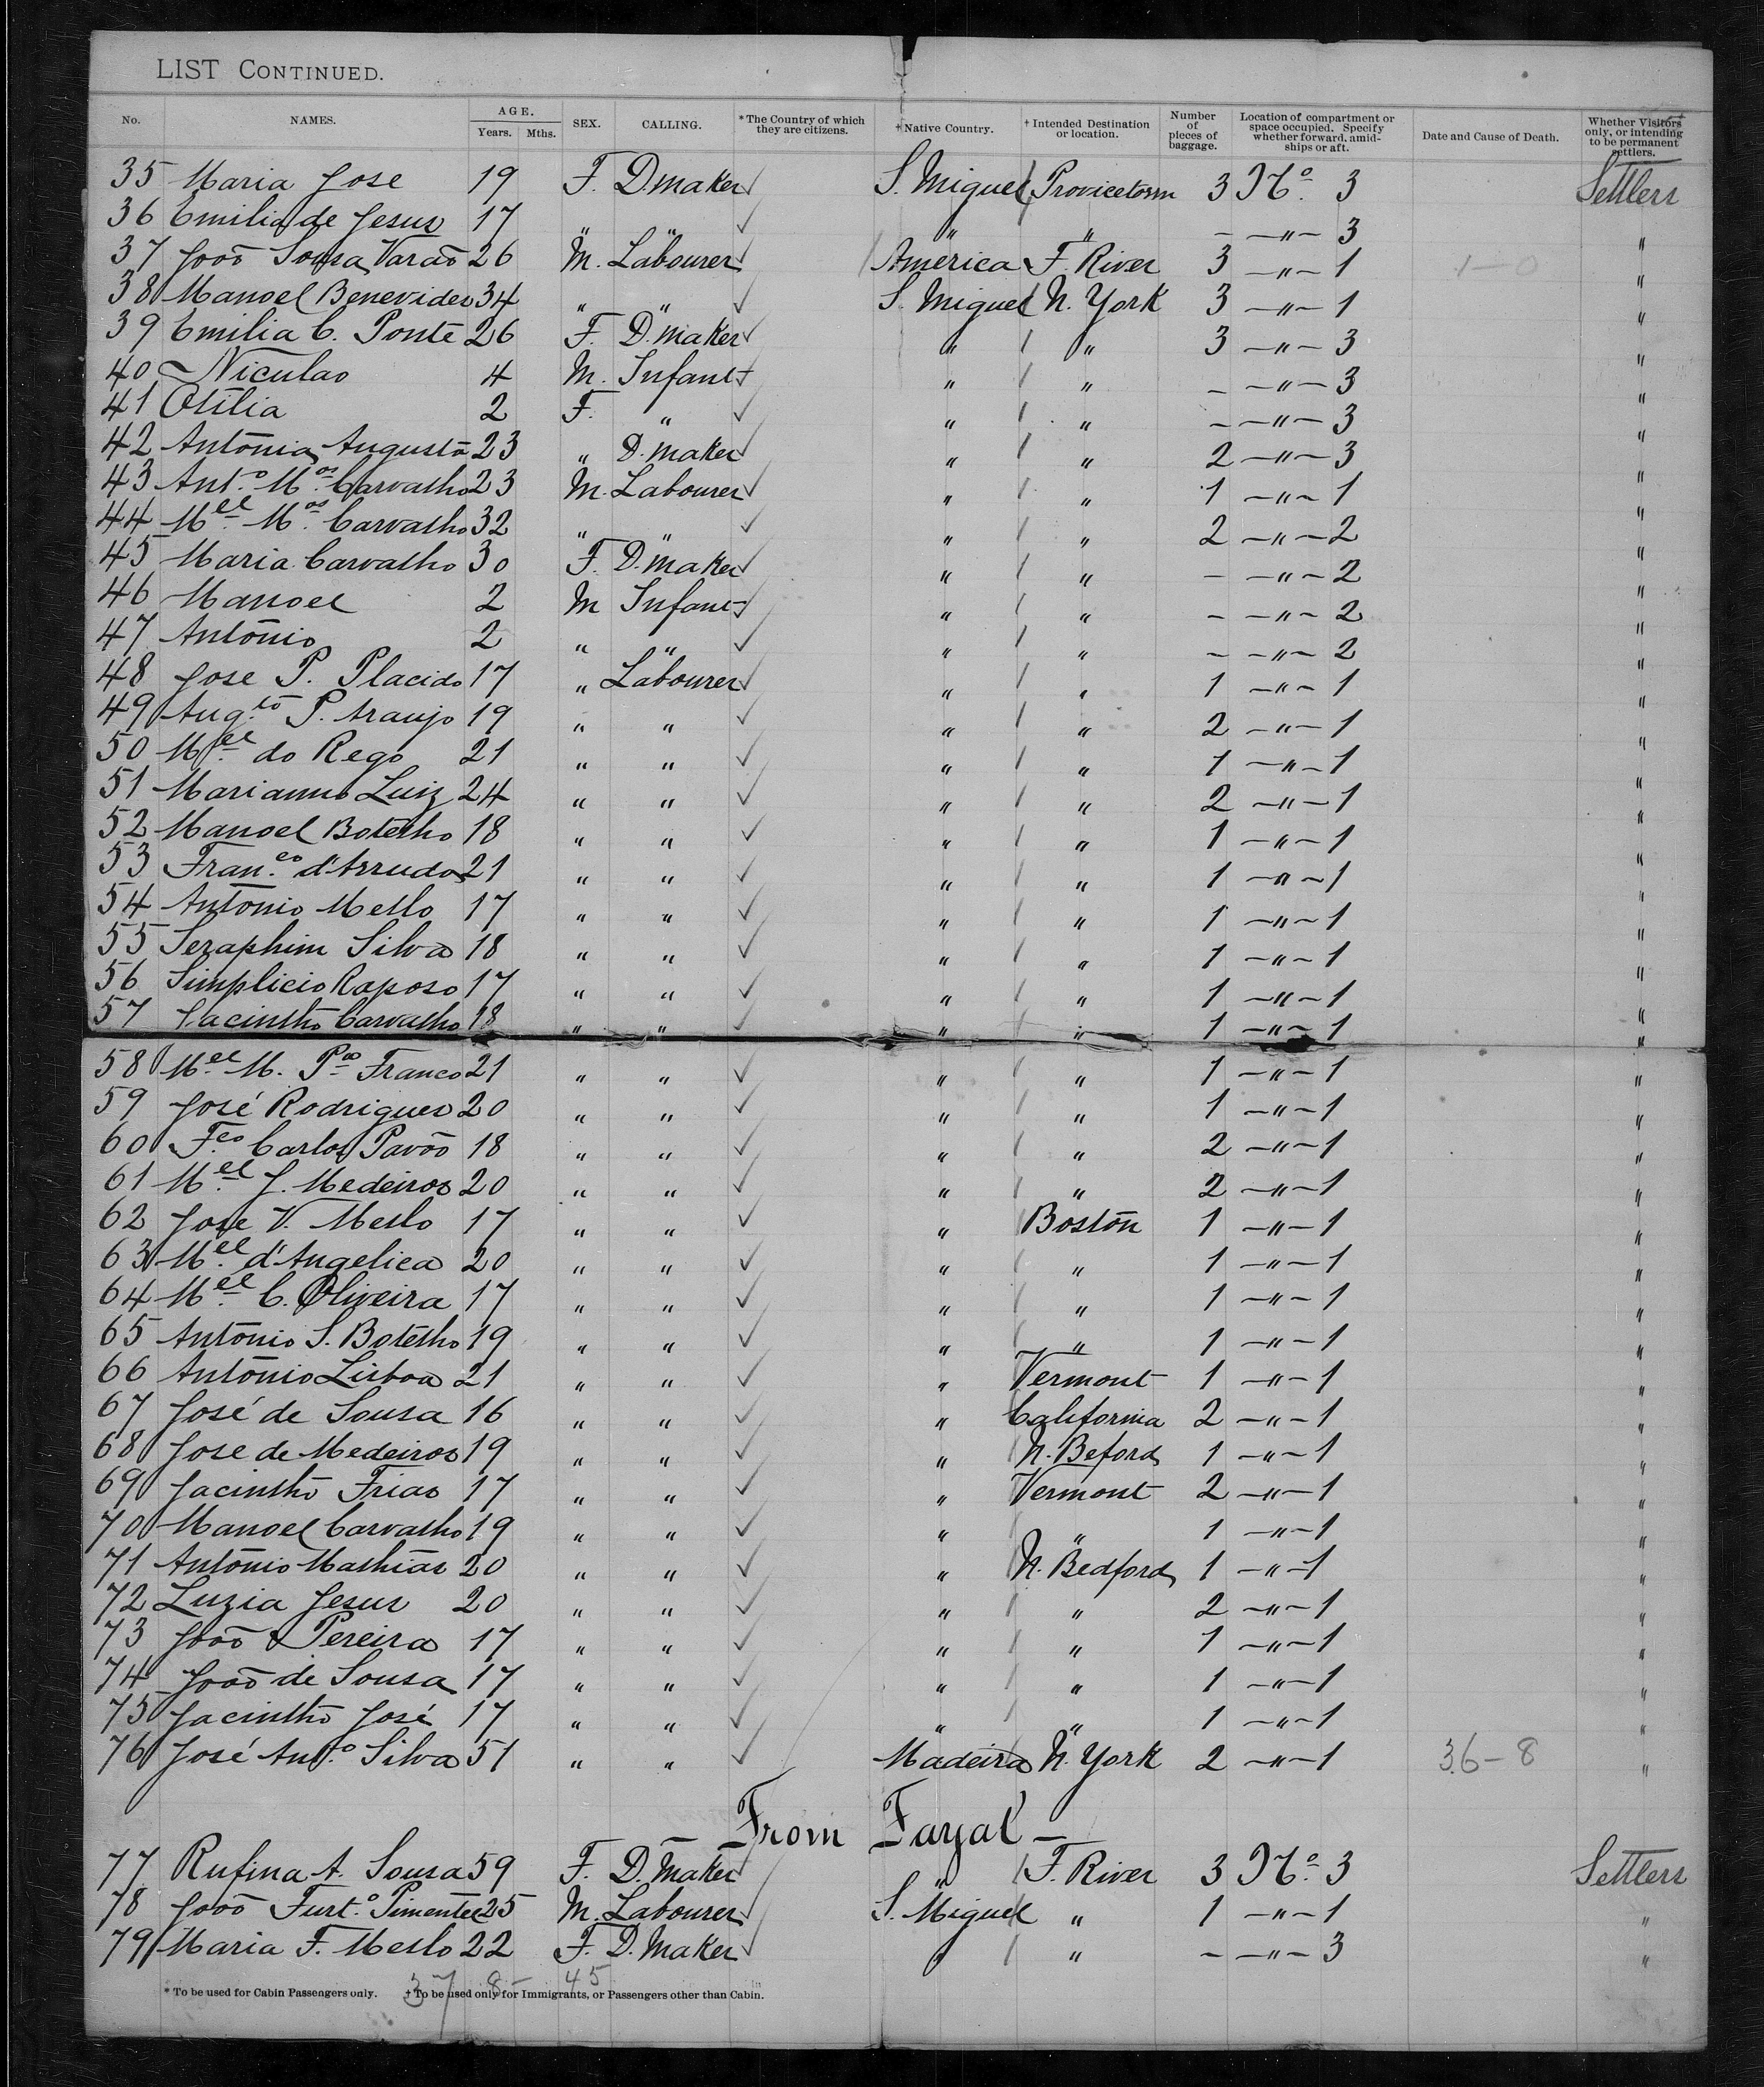 LIST CONTINUED.
No. NAMES. AGE. Years. Mths. SEX. CALLING. *The Country of which they are citizens. †Native Country. †Intended Destination or location. Number of pieces of baggage. Location of compartment or space occupied. Specify whether forward, amidships or aft. Date and Cause of Death. Whether Visitors only, or intending to be permanent settlers.
35 Maria Jose 19 F. D.maker ✓ S. Miguel Provicetown 3 No. 3 Settlers
36 Emilia de Jesus 17 " " ✓ " " - -"- 3 "
37 João Sousa Varão 26 M. Labourer ✓ America F. River 3 -"- 1 1-0 "
38 Manoel Benevides 34 " " ✓ S. Miguel N. York 3 -"- 1 "
39 Emilia C. Ponte 26 F. D.maker ✓ " " 3 -"- 3 "
40 Niculao 4 M. Infant " " - -"- 3 "
41 Otilia 2 F. " ✓ " " - -"- 3 "
42 Antonia Augusta 23 " D.maker " " 2 -"- 3 "
43 Ant.o M.os Carvalho 23 M. Labourer ✓ " " 1 -"- 1 "
44 M.el M.os Carvalho 32 " " ✓ " " 2 -"- 2 "
45 Maria Carvalho 30 F. D.maker ✓ " " - -"- 2 "
46 Manoel 2 M Infant ✓ " " - -"- 2 "
47 Antonio 2 " " ✓ " " - -"- 2 "
48 Jose P. Placido 17 " Labourer ✓ " " 1 -"- 1 "
49 Aug.to P. Araujo 19 " " ✓ " " 2 -"- 1 "
50 M.el do Rego 21 " " ✓ " " 1 -"- 1 "
51 Marianno Luiz 24 " " ✓ " " 2 -"- 1 "
52 Manoel Botelho 18 " " ✓ " " 1 -"- 1 "
53 Fran.co d'Arruda 21 " " ✓ " " 1 -"- 1 "
54 Antonio Mello 17 " " ✓ " " 1 -"- 1 "
55 Seraphim Silva 18 " " ✓ " " 1 -"- 1 "
56 Simplicio Raposo 17 " " ✓ " " 1 -"- 1 "
57 Jacintho Carvalho 18 " " ✓ " " 1 -"- 1 "
58 M.el M. P.co Franco 21 " " ✓ " " 1 -"- 1 "
59 José Rodrigues 20 " " ✓ " " 1 -"- 1 "
60 F.co Carlos Pavão 18 " " ✓ " " 2 -"- 1 "
61 M.el J. Medeiros 20 " " ✓ " " 2 -"- 1 "
62 Jose V. Mello 17 " " ✓ " Boston 1 -"- 1 "
63 M.el d'Angelica 20 " " ✓ " " 1 -"- 1 "
64 M.el C. Oliveira 17 " " ✓ " " 1 -"- 1 "
65 Antonio S. Botelho 19 " " ✓ " " 1 -"- 1 "
66 Antonio Lisboa 21 " " ✓ " Vermont 1 -"- 1 "
67 José de Sousa 16 " " ✓ " California 2 -"- 1 "
68 Jose de Medeiros 19 " " ✓ " N. Beford 1 -"- 1 "
69 Jacintho Frias 17 " " ✓ " Vermont 2 -"- 1 "
70 Manoel Carvalho 19 " " ✓ " " 1 -"- 1 "
71 Antonio Mathias 20 " " ✓ " N. Bedford 1 -"- 1 "
72 Luzia Jesus 20 " " ✓ " " 2 -"- 1 "
73 João Pereira 17 " " ✓ " " 1 -"- 1 "
74 João de Sousa 17 " " ✓ " " 1 -"- 1 "
75 Jacintho José 17 " " ✓ " " 1 -"- 1 "
76 José Ant.o Silva 51 " " ✓ Madeira N. York 2 -"- 1 36-8 "
— From Fayal —
77 Rufina A. Sousa 59 F. D.maker ✓ " F. River 3 No. 3 Settlers
78 João Furt.o Pimentel 25 M. Labourer ✓ S. Miguel " 1 -"- 1 "
79 Maria F. Mello 22 F. D.Maker ✓ " - -"- 3 "
37 8- 45
* To be used for Cabin Passengers only. † To be used only for Immigrants, or Passengers other than Cabin.